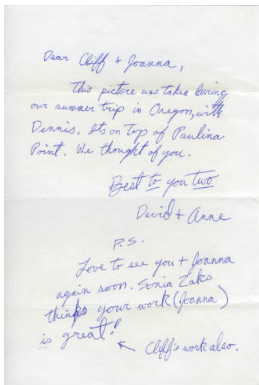 Dear Cliff + Joanna,
This picture was taken during
our summer trip in Oregon, with
Dennis. Its on top of Paulina
Point. We thought of you.
Best to you two
David + Anne
P.S.
Love to see you + Joanna
again soon. Sonia Zaks
thinks your work (Joanna)
is great!
Cliff's work also.